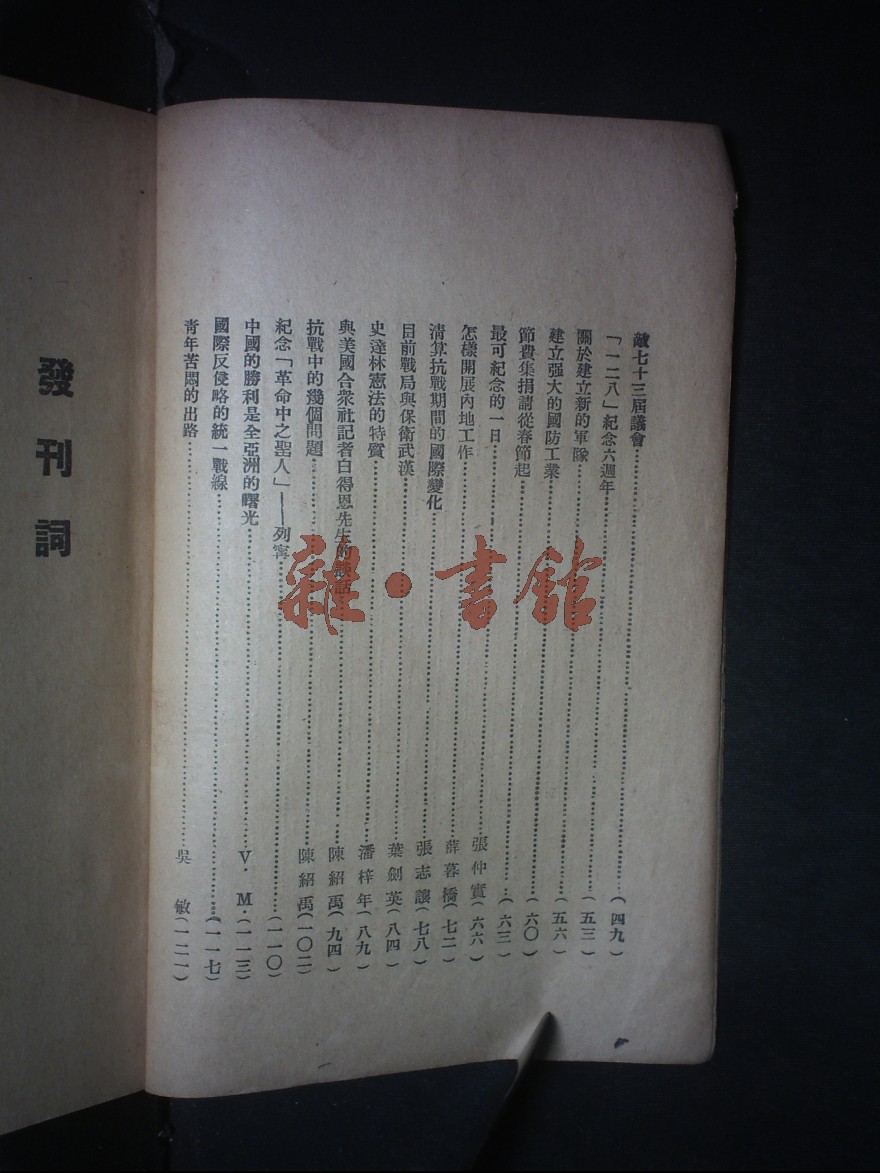 敵七十三屆議會…………(四九)
「一二八」紀念六週年…………(五三)
關於建立新的軍隊…………(五六)
建立强大的國防工業…………(六〇)
節費集捐請從春節起…………(六三)
最可紀念的一日…………張仲實(六六)
怎樣開展內地工作…………薛暮橋(七二)
清算抗戰期間的國際變化…………張志讓(七八)
目前戰局與保衛武漢…………葉劍英(八四)
史達林憲法的特質…………潘梓年(八九)
與美國合衆社記者白得恩先生的談話…………陳紹禹(九四)
抗戰中的幾個問題…………陳紹禹(一〇二)
紀念「革命中之聖人」——列寧…………(一一〇)
中國的勝利是全亞洲的曙光…………V.M.(一一三)
國際反侵略的統一戰線…………(一一七)
青年苦悶的出路…………吳敏(一二一)
發刊詞
雜·書館